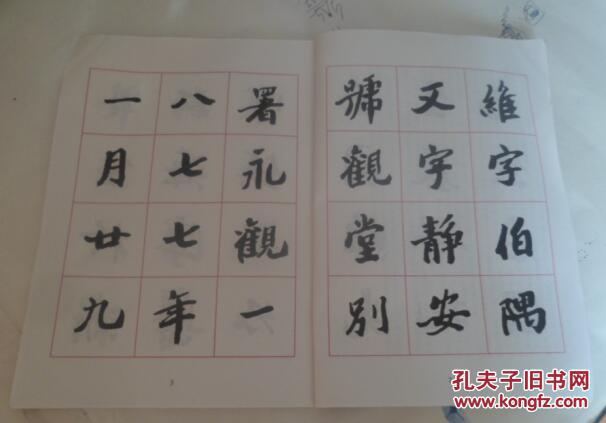 維字伯隅
又字静安
號觀堂別
署永觀一
八七七年
一月廿九
3
孔夫子旧书网
www.kongfz.com